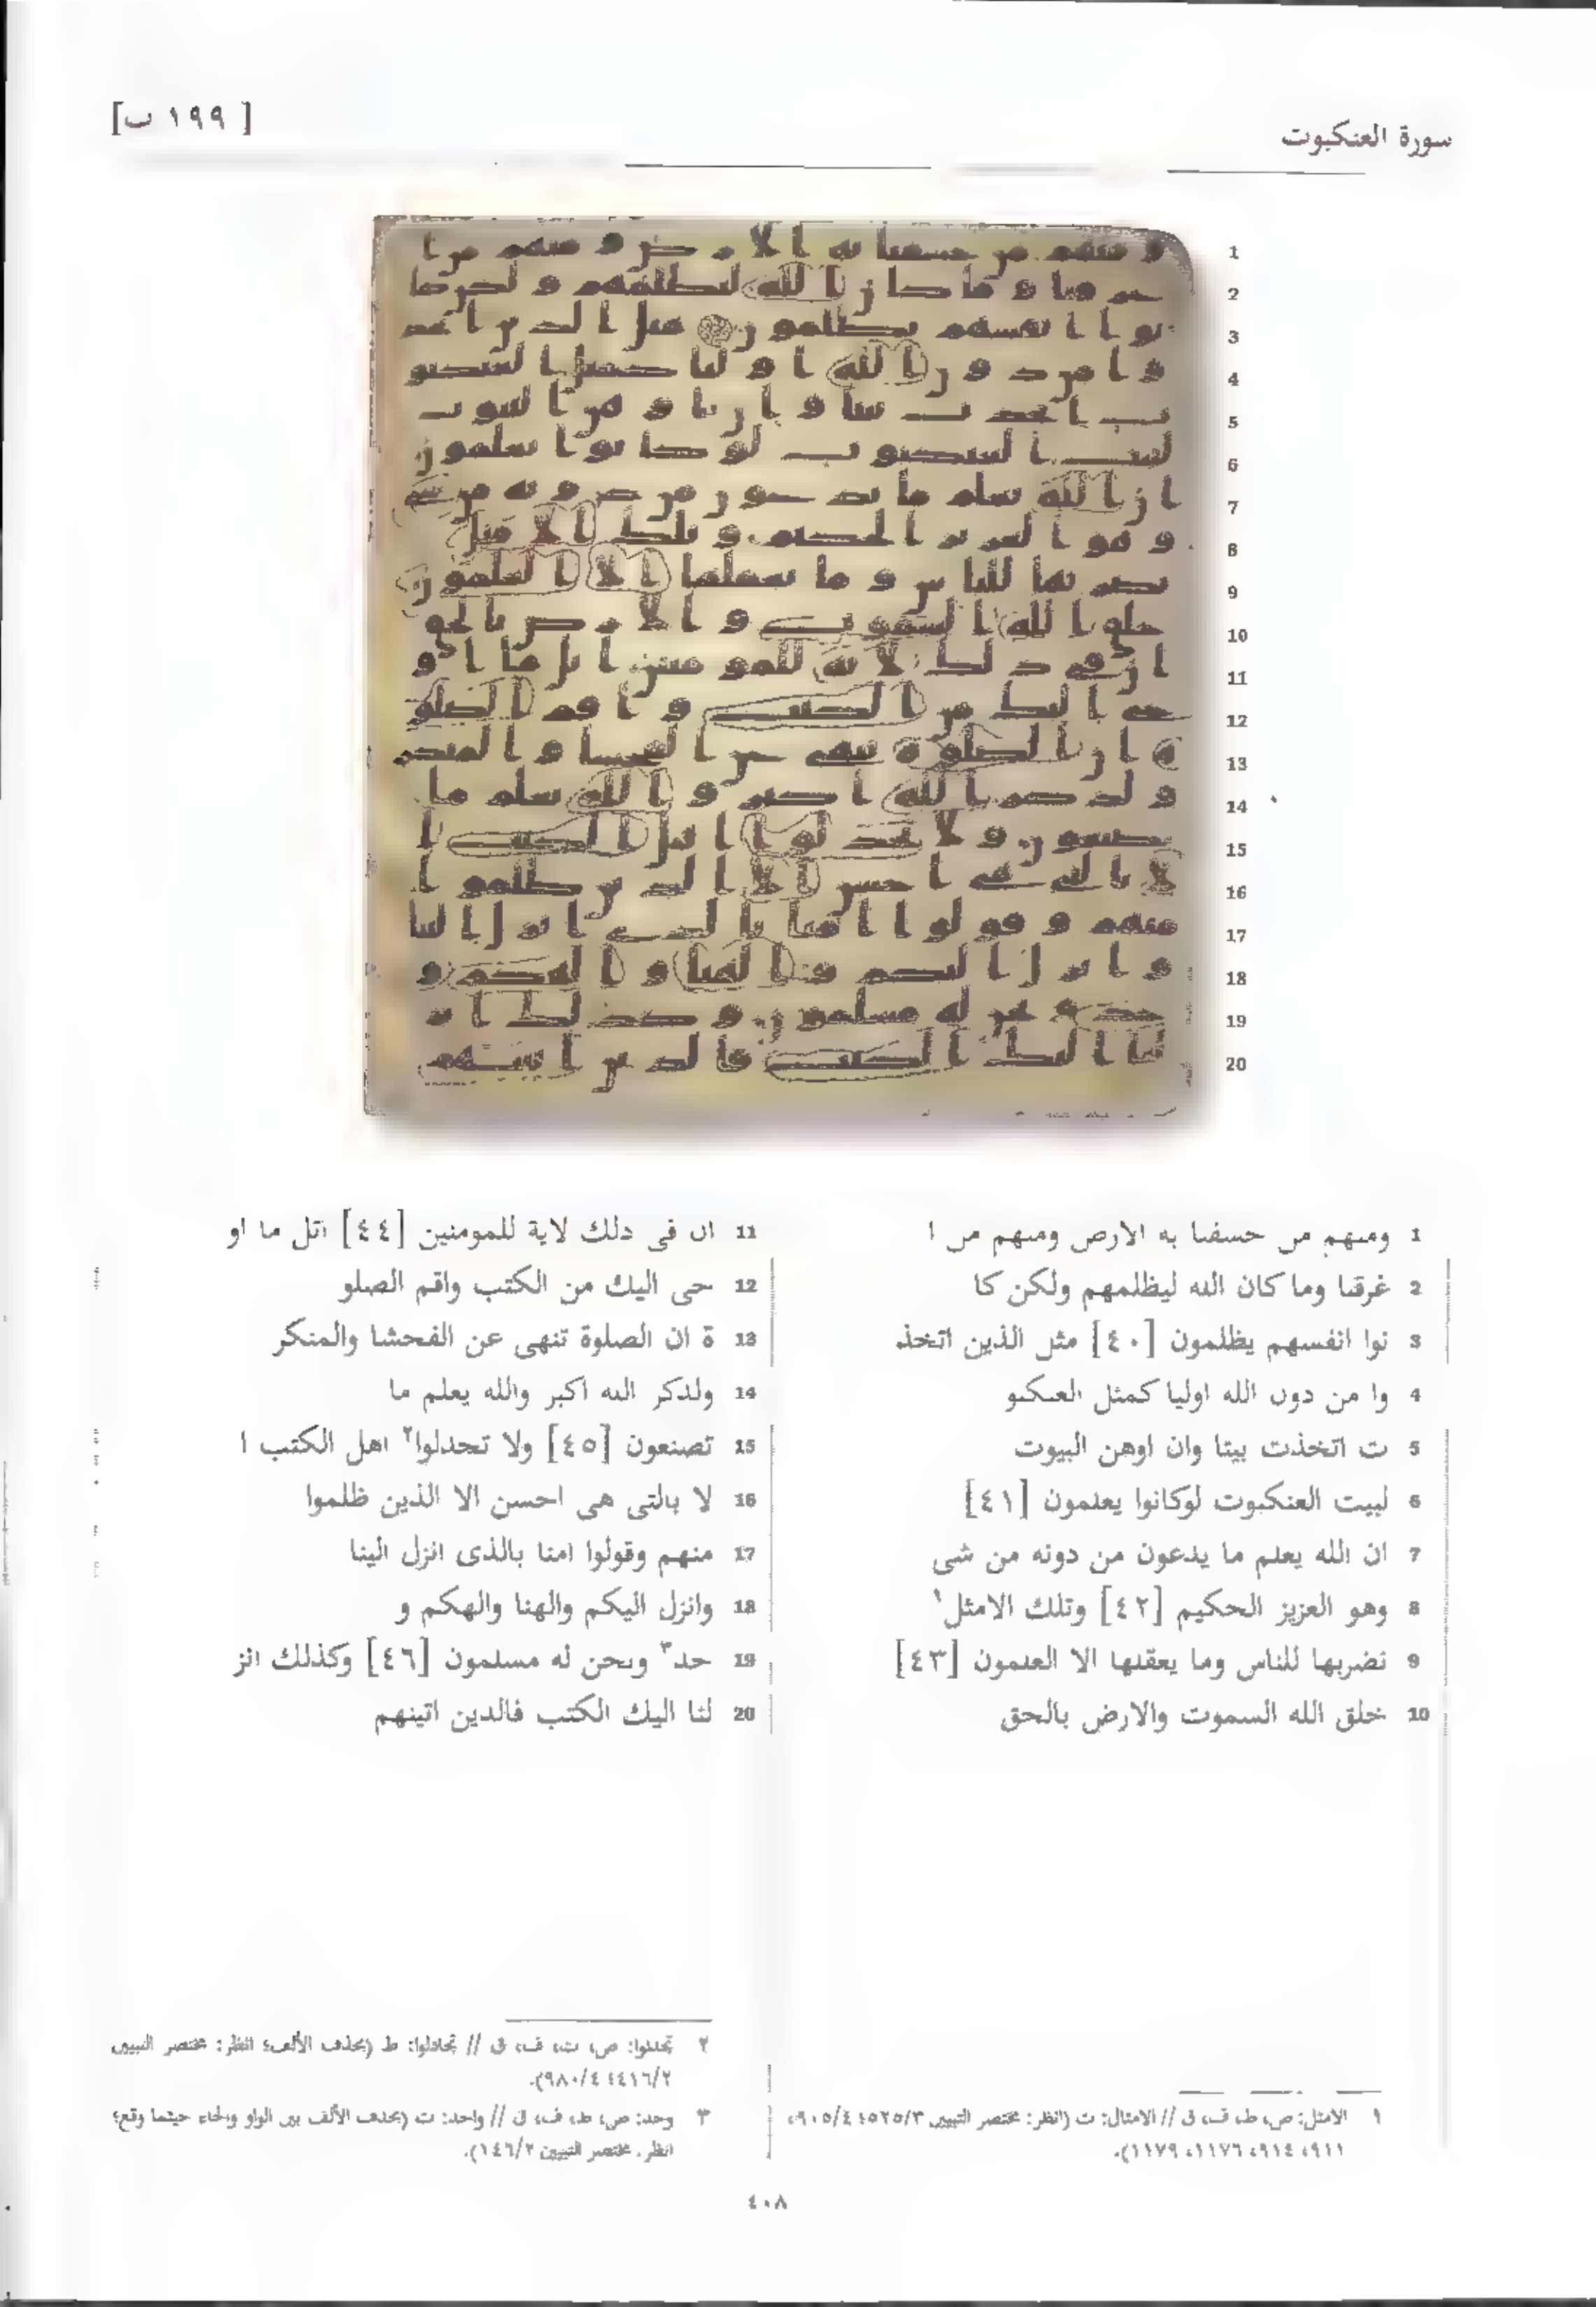 سورة العنكبوت
[ ١٩٩ ب]
1 ومنهم من حسفنا به الارص ومنهم من ا
2 غرقنا وما كان الله ليظلمهم ولكن كا
3 نوا انفسهم يظلمون [٤٠] مثل الذين اتخذ
4 وا من دون الله اوليا كمثل العنكبو
5 ت اتخذت بيتا وان اوهن البيوت
6 لبيت العنكبوت لوكانوا يعلمون [٤١]
7 ان الله يعلم ما يدعون من دونه من شى
8 وهو العزيز الحكيم [٤٢] وتلك الامثل١
9 نضربها للناس وما يعقلها الا العلمون [٤٣]
10 خلق الله السموت والارض بالحق
11 ان فى دلك لاية للمومنين [٤٤] اتل ما او
12 حى اليك من الكتب واقم الصلو
13 ة ان الصلوة تنهى عن الفحشا والمنكر
14 ولذكر الله اكبر والله يعلم ما
15 تصنعون [٤٥] ولا تجدلوا٢ اهل الكتب ا
16 لا بالتى هى احسن الا الذين ظلموا
17 منهم وقولوا امنا بالذى انزل الينا
18 وانزل اليكم والهنا والهكم و
19 حد٣ ونحن له مسلمون [٤٦] وكذلك انز
20 لنا اليك الكتب فالدين اتينهم
١ الامثل: ص، ط، ف، ق // الامثال: ت (انظر: مختصر التبيين ٥٢٥/٣؛ ٩٠٥/٤،
٩١١، ٩١٤، ١١٧٦، ١١٧٩).
٢ تجدلوا: ص، ت، ف، ق // تجادلوا: ط (بحذف الألف؛ انظر: مختصر التبيين
٤١٦/٢؛ ٩٨٠/٤).
٣ وحد: ص، ط، ف، ق // واحد: ت (بحذف الألف بين الواو والحاء حيثما وقع؛
انظر. مختصر التبيين ١٤٦/٢).
٤٠٨